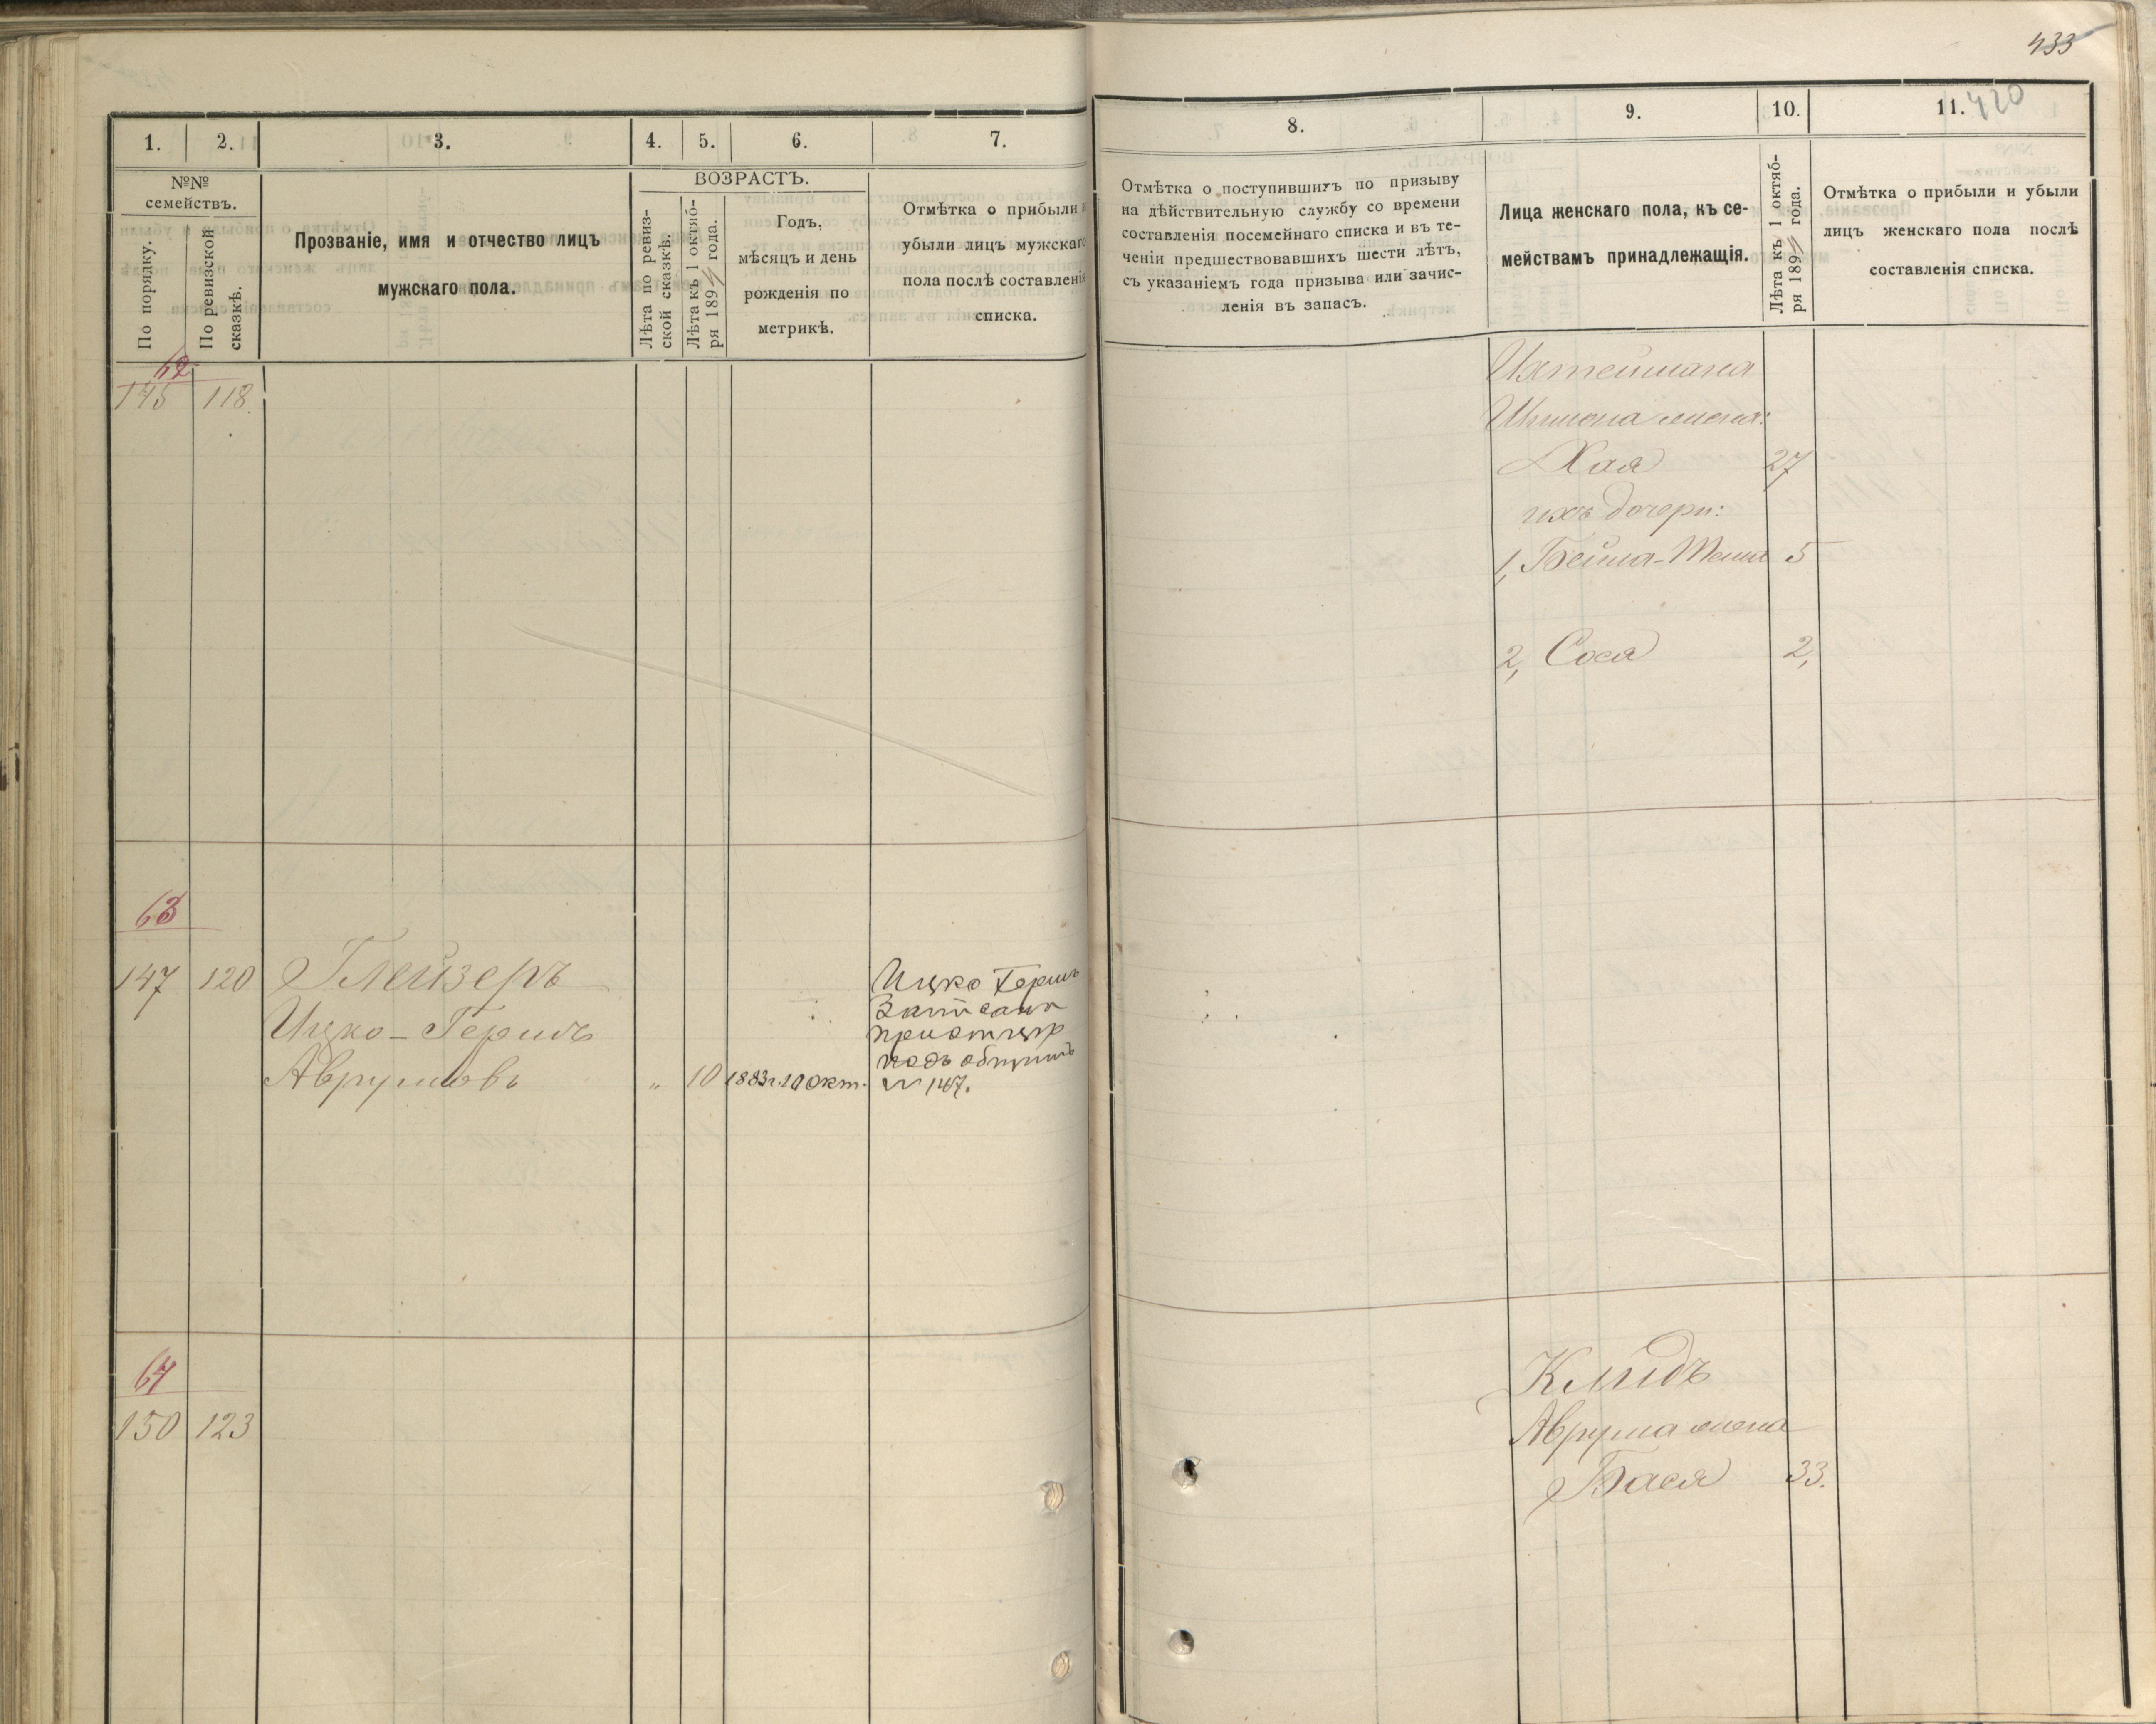 433
420
1.
2.
3.
4.
5.
6.
7.
№№ семействъ.
По порядку.
По ревизской сказкѣ.
Прозваніе, имя и отчество лицъ
мужскаго пола.
ВОЗРАСТЪ.
Лѣта по ревиз-
ской сказкѣ.
Лѣта къ 1 октяб-
ря 189 года.
Годъ,
мѣсяцъ и день
рожденія по
метрикѣ.
Отмѣтка о прибыли и
убыли лицъ мужскаго
пола послѣ составленія
списка.
8.
9.
10.
11.
Отмѣтка о поступившихъ по призыву
на дѣйствительную службу со времени
составленія посемейнаго списка и въ те-
ченіи предшествовавшихъ шести лѣтъ,
съ указаніемъ года призыва или зачис-
ленія въ запасъ.
Лица женскаго пола, къ се-
мействамъ принадлежащія.
Лѣта къ 1 октяб-
ря 189 года.
Отмѣтка о прибыли и убыли
лицъ женскаго пола послѣ
составленія списка.
62
145 118
жена:
Хая 27
ихъ дочери:
1, Бейла- 5
2, Сося 2,
63
147 120 Глейзеръ
Ицко-Гершъ
Аврумовъ " 10 1883г. 10 окт.
Ицко Гершъ
Записанъ
при отцѣ
подъ общимъ
№ 147.
64
150 123
Клидъ
Аврума жена
Бася 33.